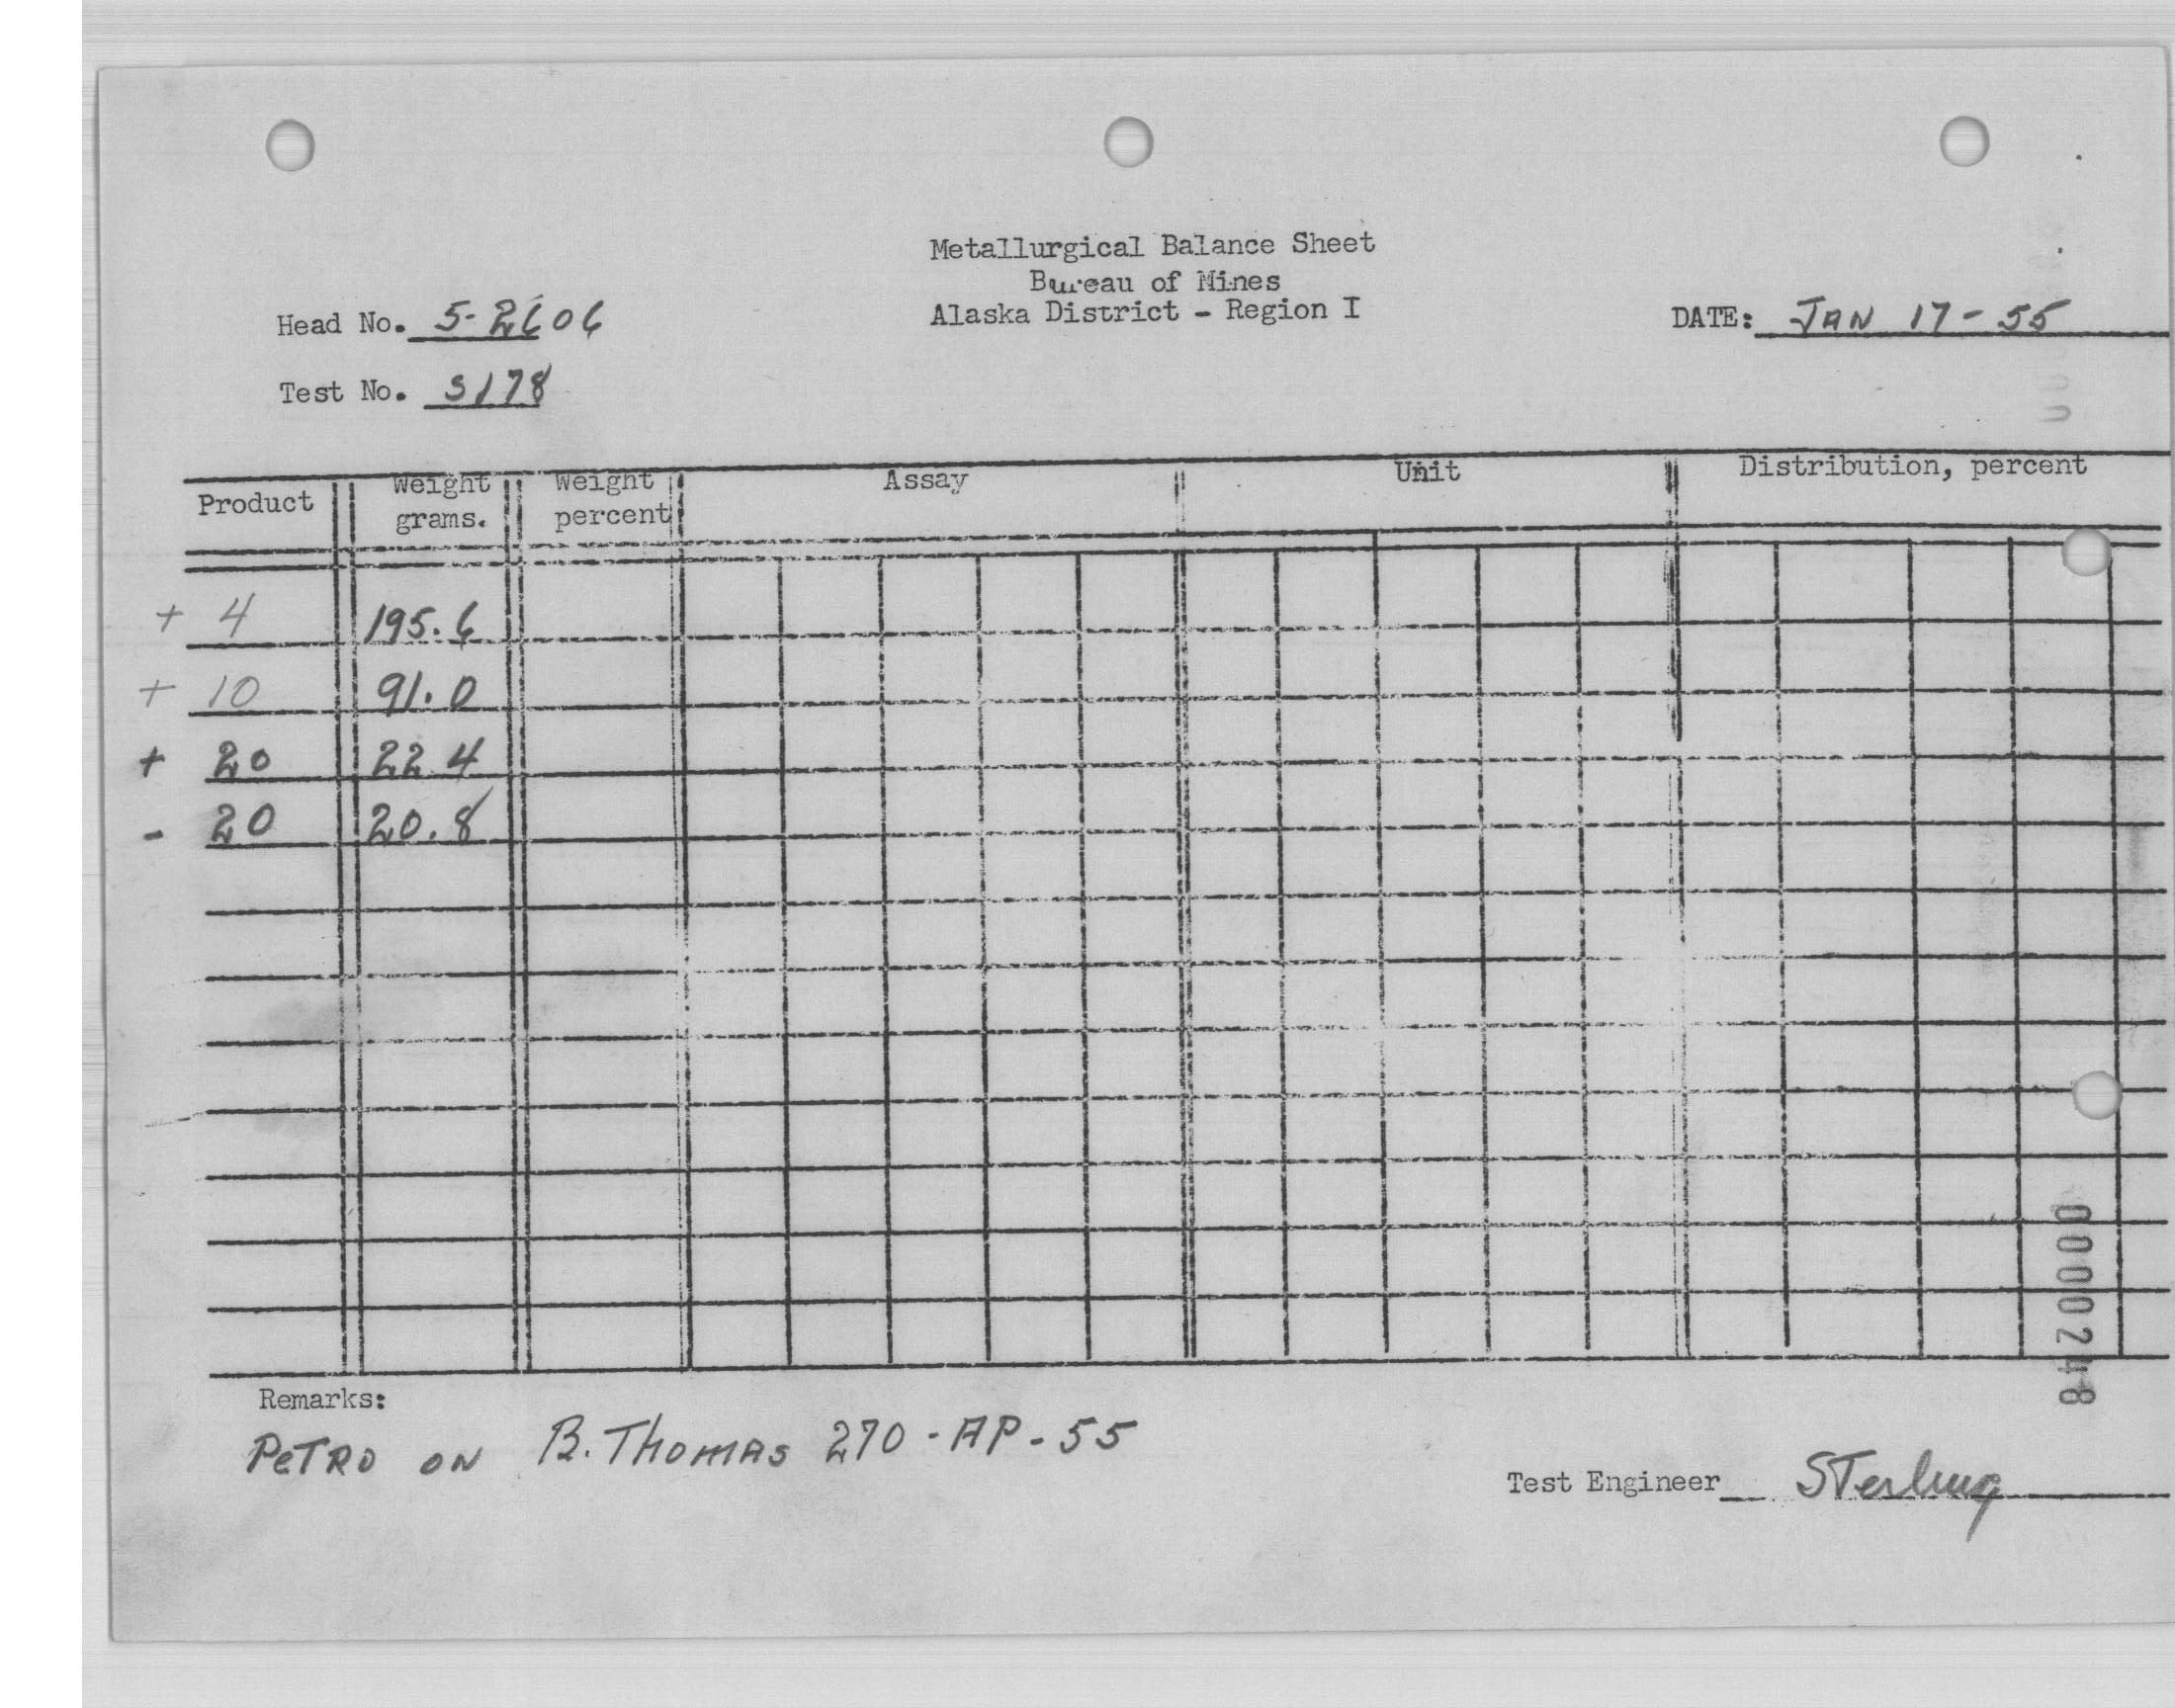 Metallurgical Balance Sheet
Bureau of Mines
Alaska District - Region I
Head No. 5-2606
DATE: JAN 17-55
Test No. S178
Product Weight grams. Weight percent Assay Unit Distribution, percent
+ 4 195.6
+ 10 91.0
+ 20 22.4
- 20 20.8
0000248
Remarks:
PeTRO ON B. THOMAS 270-AP-55
Test Engineer STerling